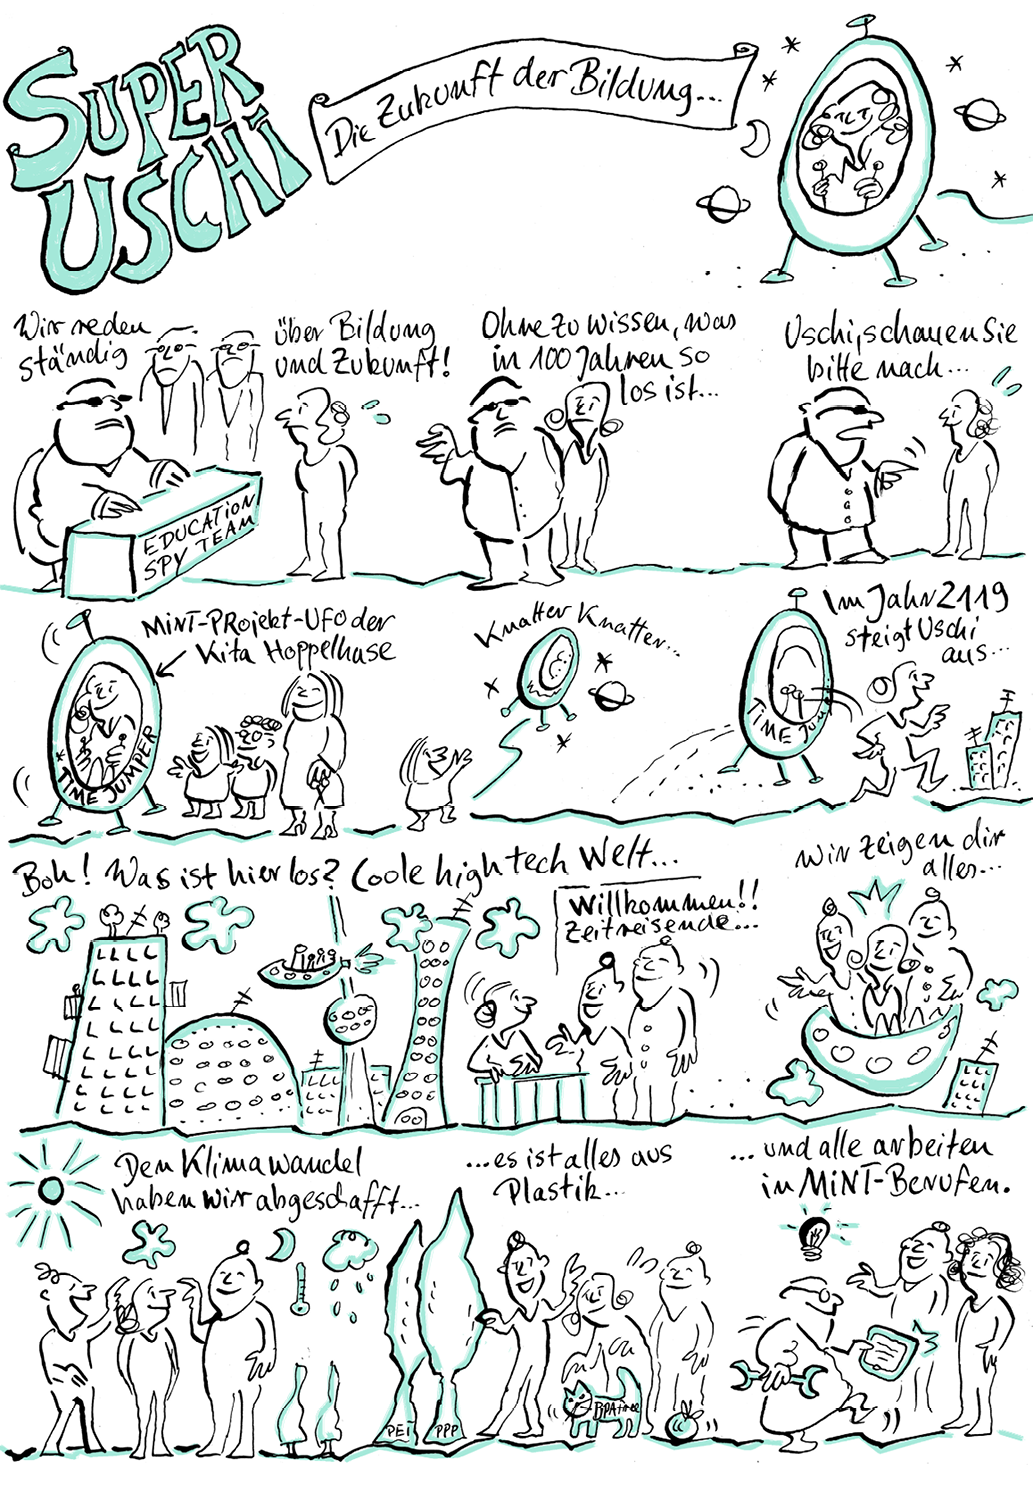 SUPER
USCHI
Die Zukunft der Bildung...
Wir reden
ständig
über Bildung
und Zukunft!
EDUCATION
SPY TEAM
Ohne zu wissen, was
in 100 Jahren so
los ist...
Uschi, schauen Sie
bitte nach...
MINT-PROjekt-UFO der
Kita Hoppelhase
* TIME JUMPER
Knatter Knatter...
Im Jahr 2119
steigt Uschi
aus...
TIME Jum
Boh! Was ist hier los? Coole high tech Welt...
Willkommen!!
Zeitreisende...
Wir zeigen dir
alles...
Den Klimawandel
haben wir abgeschafft...
...es ist alles aus
Plastik...
PEI
PPP
BPA free
... und alle arbeiten
in MINT-Berufen.